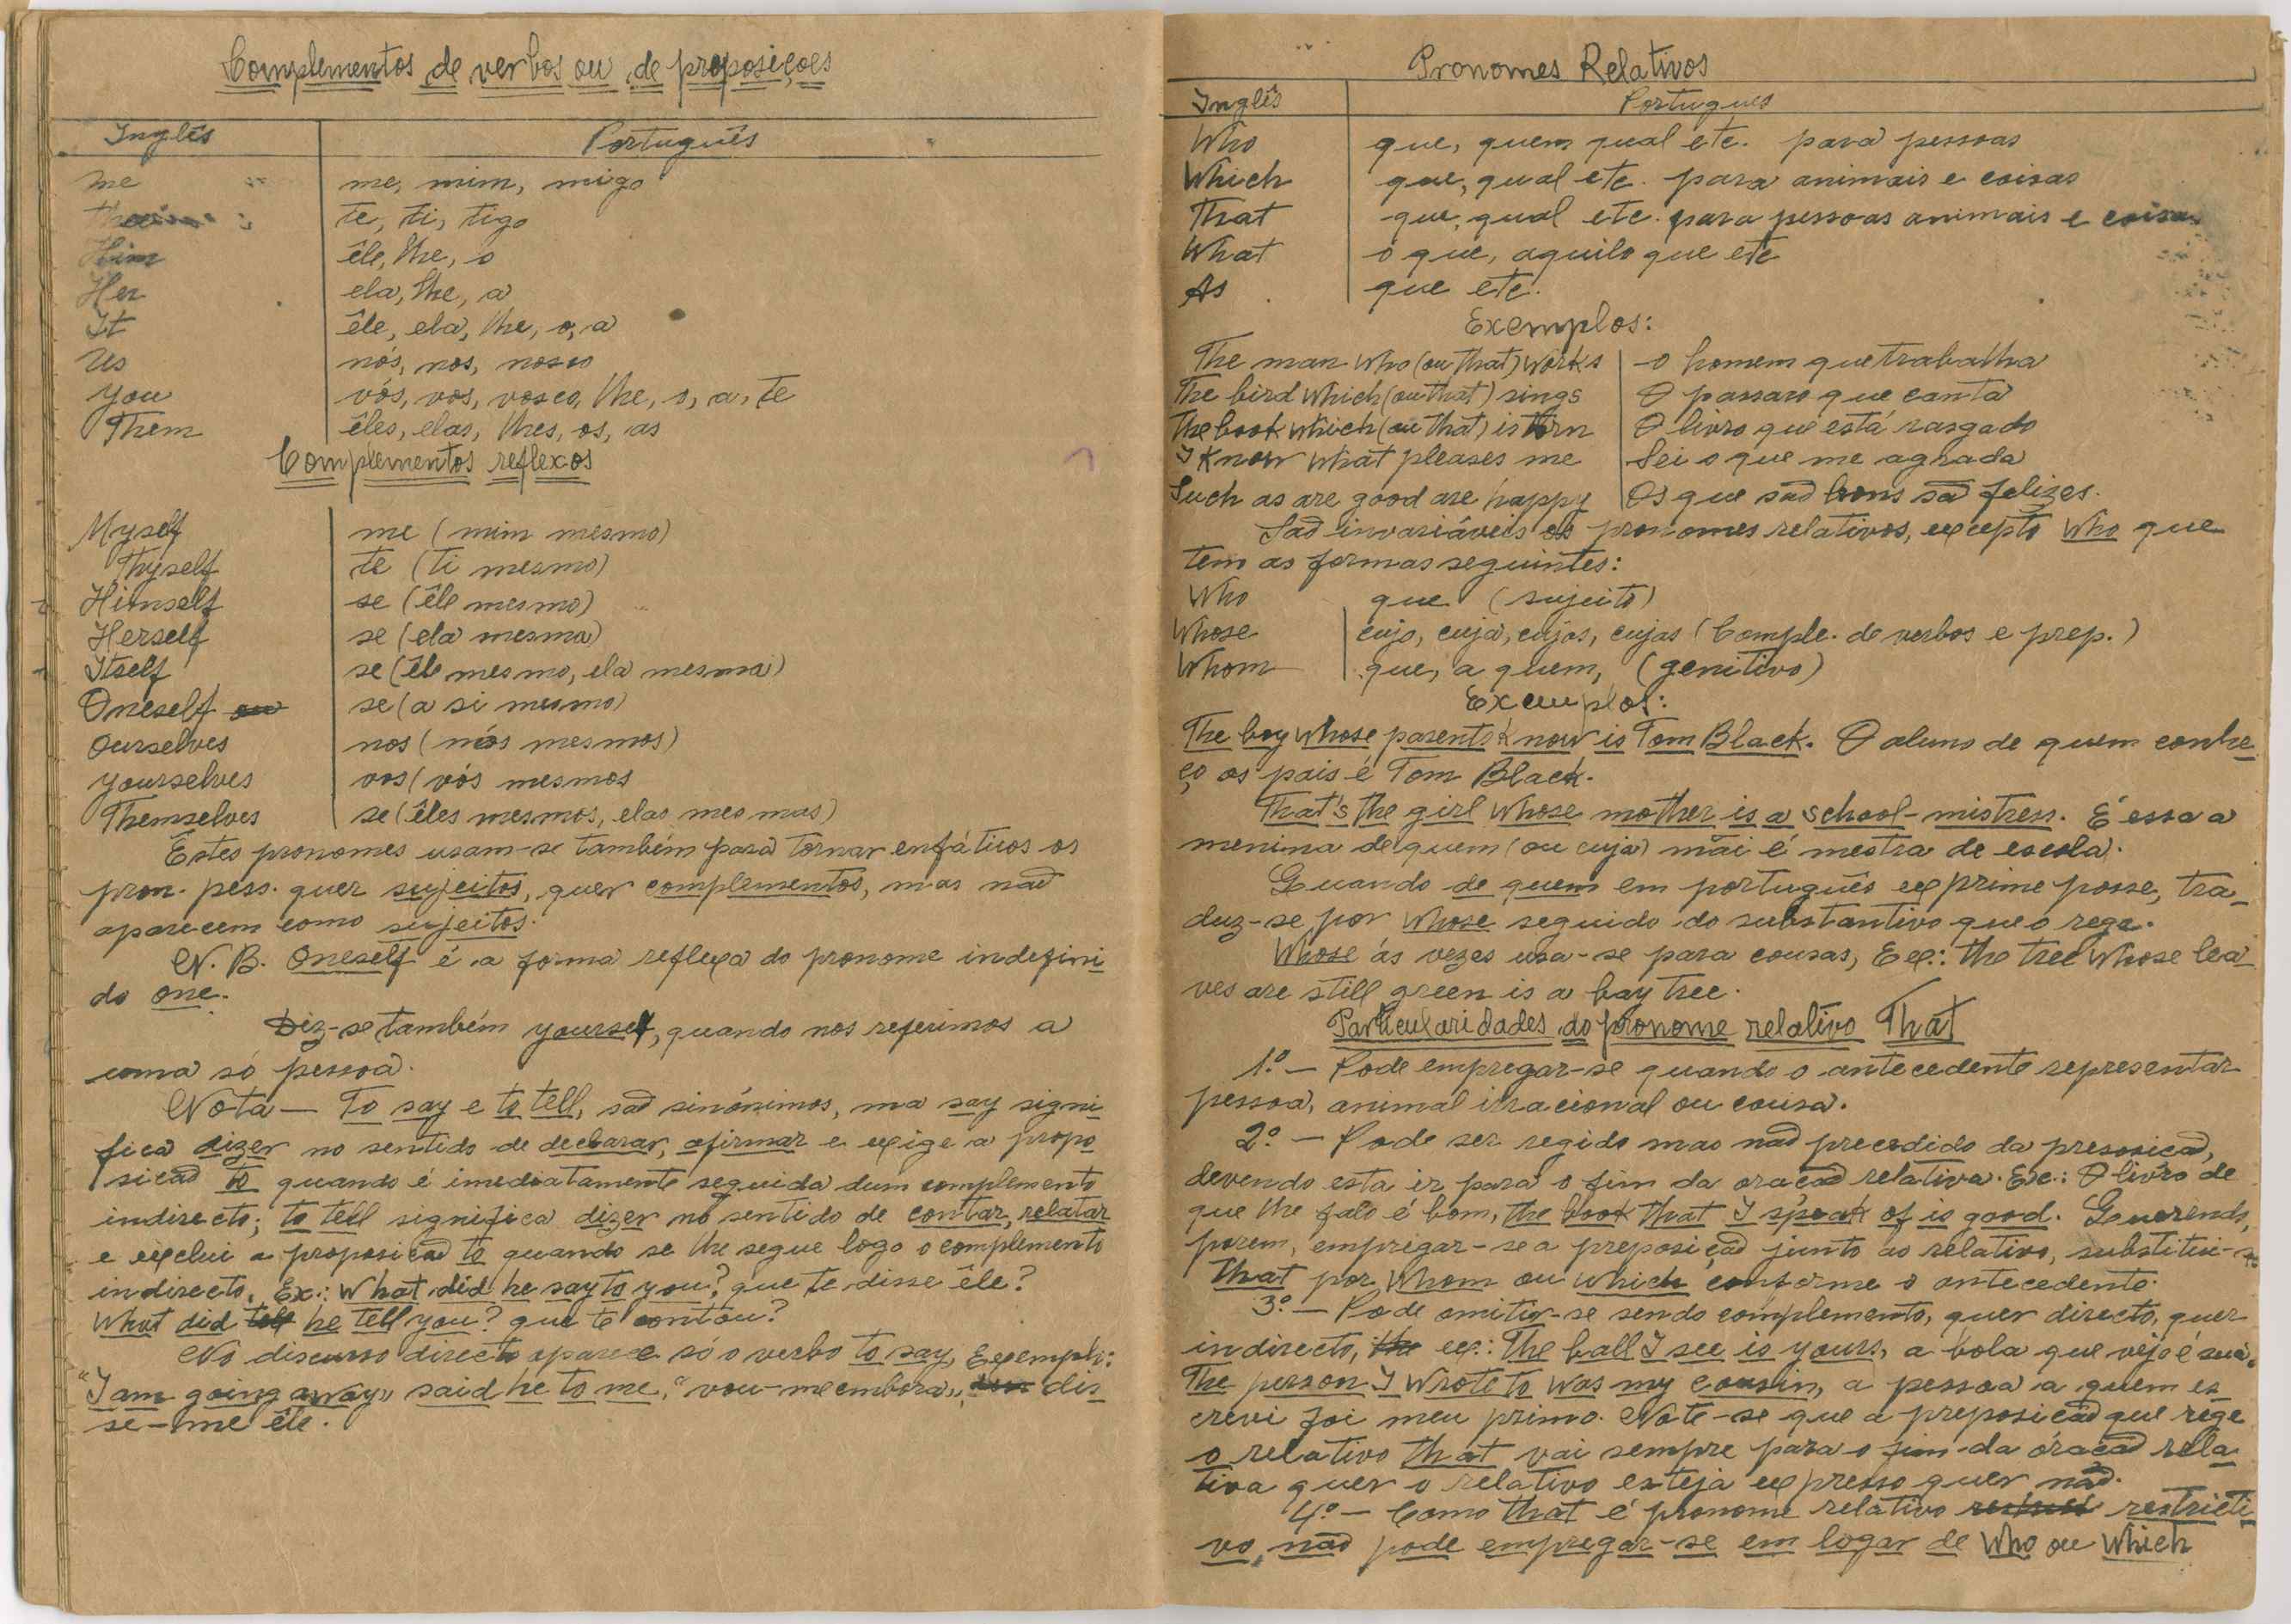 Complementos de verbos ou de proposiçoes
Inglês Português
me me, mim, migo
te, ti, tigo
Him êle, lhe, o
Her ela, lhe, a
It êle, ela, lhe, o, a
Us nós, nos, nosco
you vós, vos, vosco, lhe, o, a, te
Them êles, elas, lhes, os, as
Complementos reflexos
Myself me (mim mesmo)
Thyself te (ti mesmo)
Himself se (êle mesmo)
Herself se (ela mesma)
Itself se (êle mesmo, ela mesma)
Oneself ou se (a si mesmo)
Ourselves nos (nós mesmos)
yourselves vos (vós mesmos
Themselves se (êles mesmos, elas mesmas)
Estes pronomes usam-se também para tornar enfáticos os
pron. pess. quer sujeitos, quer complementos, mas naõ
aparecem como sujeitos.
N. B. Oneself é a forma reflexa do pronome indefini
do one.
Diz-se também yourself, quando nos referimos a
uma só pessoa.
Nota — To say e to tell, saõ sinónimos, ma say signi
fica dizer no sentido de declarar, afirmar e exige a propo
sicaõ to quando é imediatamente seguida dum complemento
indirecto; to tell significa dizer no sentido de contar, relatar
e exclui a proposicaõ to quando se lhe segue logo o complemento
indirecto. Ex.: What did he say to you? que te disse êle?
What did tell he tell you? que te contou?
No discurso directo aparece só o verbo to say, Exemplo:
"I am going away" said he to me, "vou-me embora", dis
se-me êle.
Pronomes Relativos
Inglês Portugues
Who que, quem qual etc. para pessoas
Which que, qual etc. para animais e coisas
That que, qual etc. para pessoas animais e coisas
What o que, aquilo que etc
As que etc.
Exemplos:
The man who (ou that) works o homem que trabalha
The bird which (ou that) sings O passaro que canta
The book which (ou that) is torn O livro que está rasgado
I know what pleases me Sei o que me agrada
Such as are good are happy Os que saõ bons sã felizes.
Saõ invariáveis os pronomes relativos, excepto Who que
tem as formas seguintes:
Who que (sujeito)
Whose cujo, cuja, cujos, cujas (Comple. de verbos e prep.)
Whom que, a quem, (genitivo)
Exemplos:
The boy whose parents I know is Tom Black. O aluno de quem conhe
ço os pais é Tom Black.
That's the girl whose mother is a school-mistress. É essa a
menina de quem (ou cuja) mãi é mestra de escola.
Quando de quem em português exprime posse, tra-
duz-se por whose seguido do substantivo que o rege.
Whose ás vezes usa-se para cousas, Ex.: the tree whose lea
ves are still green is a bay tree.
Particularidades do pronome relativo That
1.º — Pode empregar-se quando o antecedente representar
pessoa, animal irracional ou cousa.
2.º — Pode ser regido mas naõ precedido da presosicaõ,
devendo esta ir para o fim da oracaõ relativa. Ex.: O livro de
que lhe falo é bom, the book that I speak of is good. Querendo,
porem, empregar-se a preposiçaõ junto ao relativo, substitui-se
that por whom ou which conforme o antecedente.
3.º — Pode omitir-se sendo complemento, quer directo, quer
indirecto, the ex.: The ball I see is yours, a bola que vejo é sua.
The person I wrote to was my cousin, a pessoa a quem es
crevi foi meu primo. Note-se que a preposicaõ que rege
o relativo that vai sempre para o fim da oracaõ rela
tiva quer o relativo esteja expresso quer naõ.
4.º — Como that é pronome relativo restricti
vo, naõ pode empregar-se em logar de Who ou Which